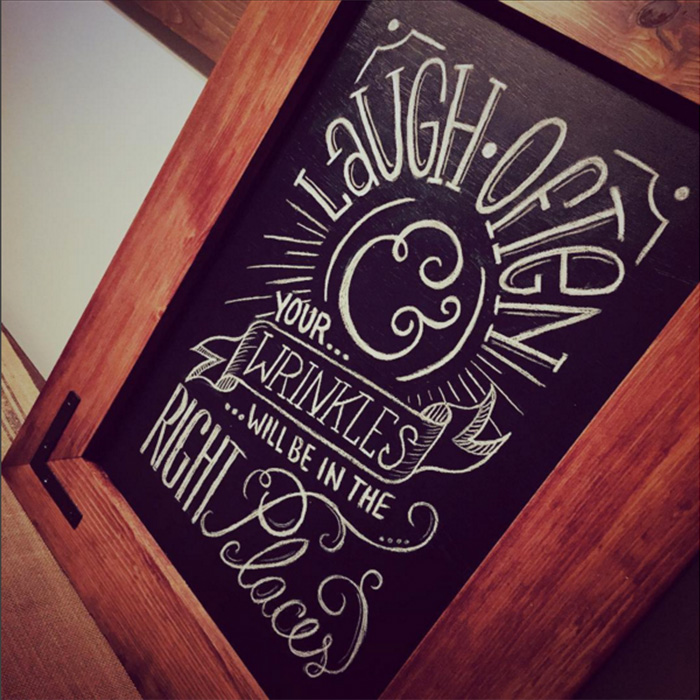 LaUGH • OFTEN
&
YOUR...
WRINKLES
...WILL BE IN THE
RIGHT Places